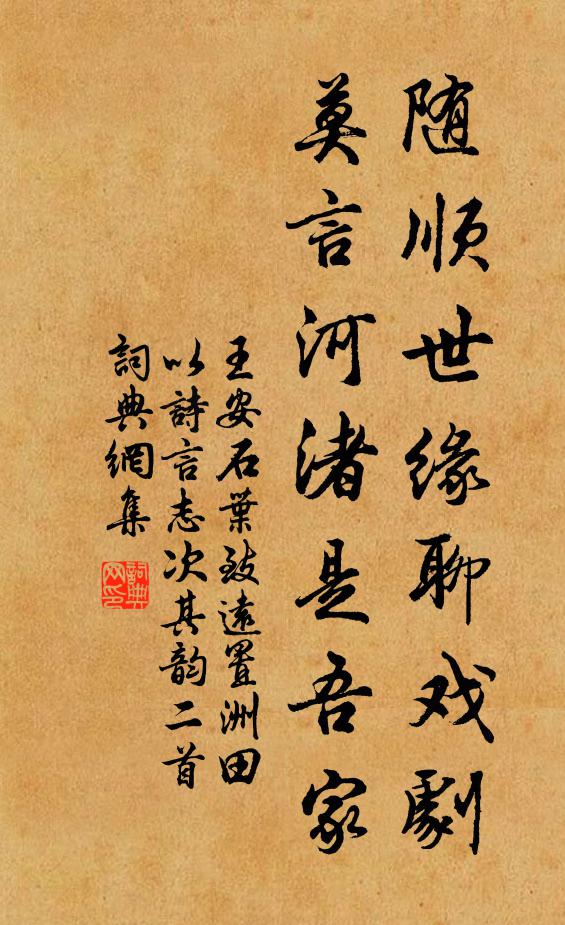 随順世緣聊戏劇
莫言河渚是吾家
王安石葉致遠置洲田
以詩言志次其韵二首
詞典網集
詞典网印